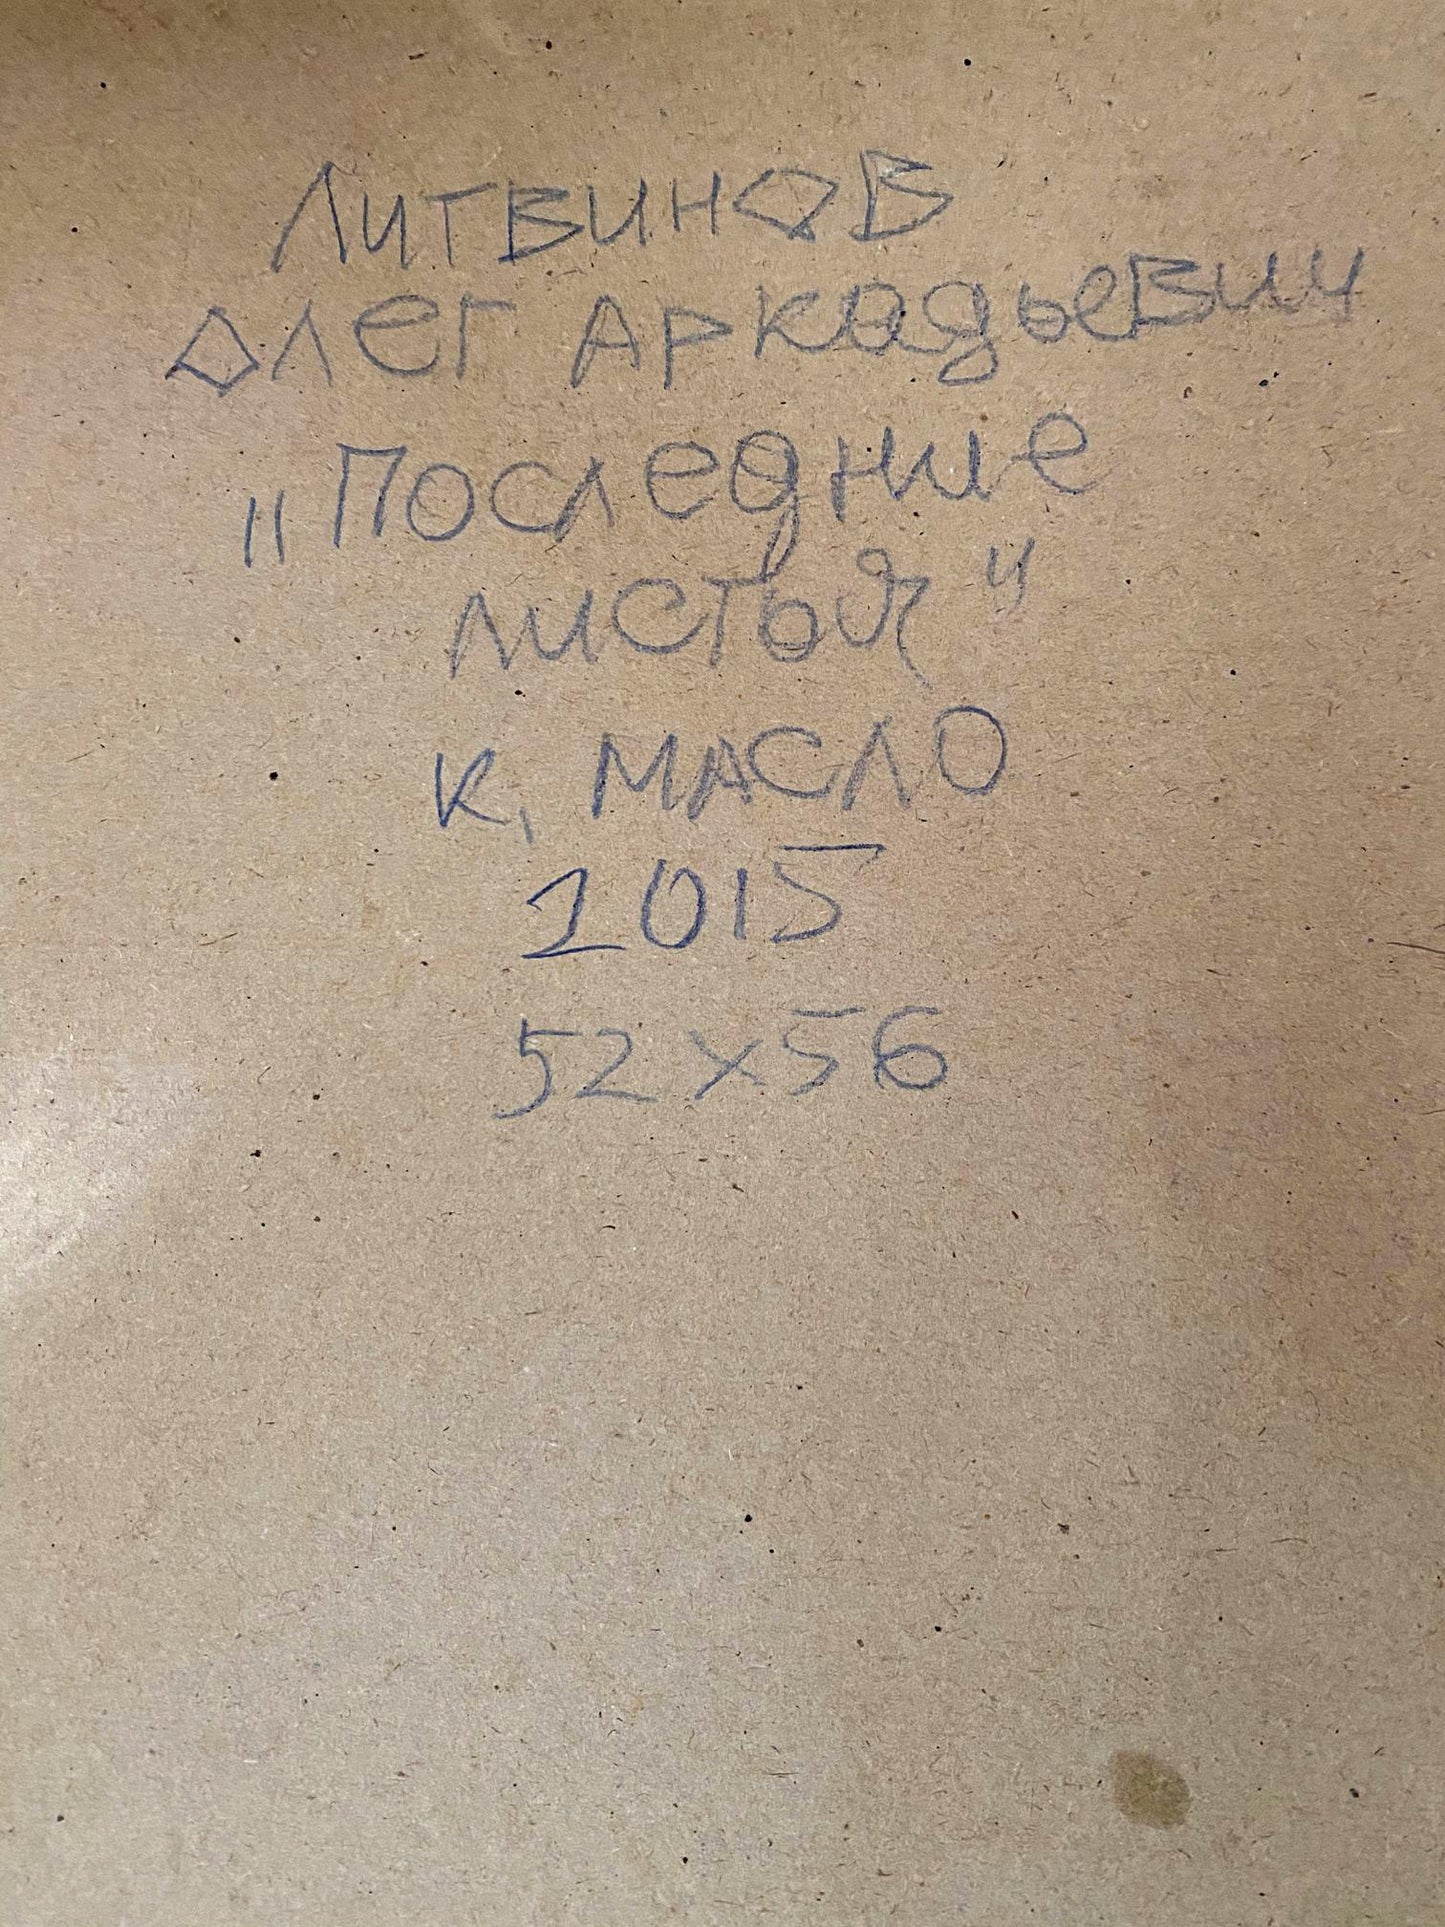 Литвинов
Олег Аркадьевич
„Последние
листья"
к, масло
2015
52x56